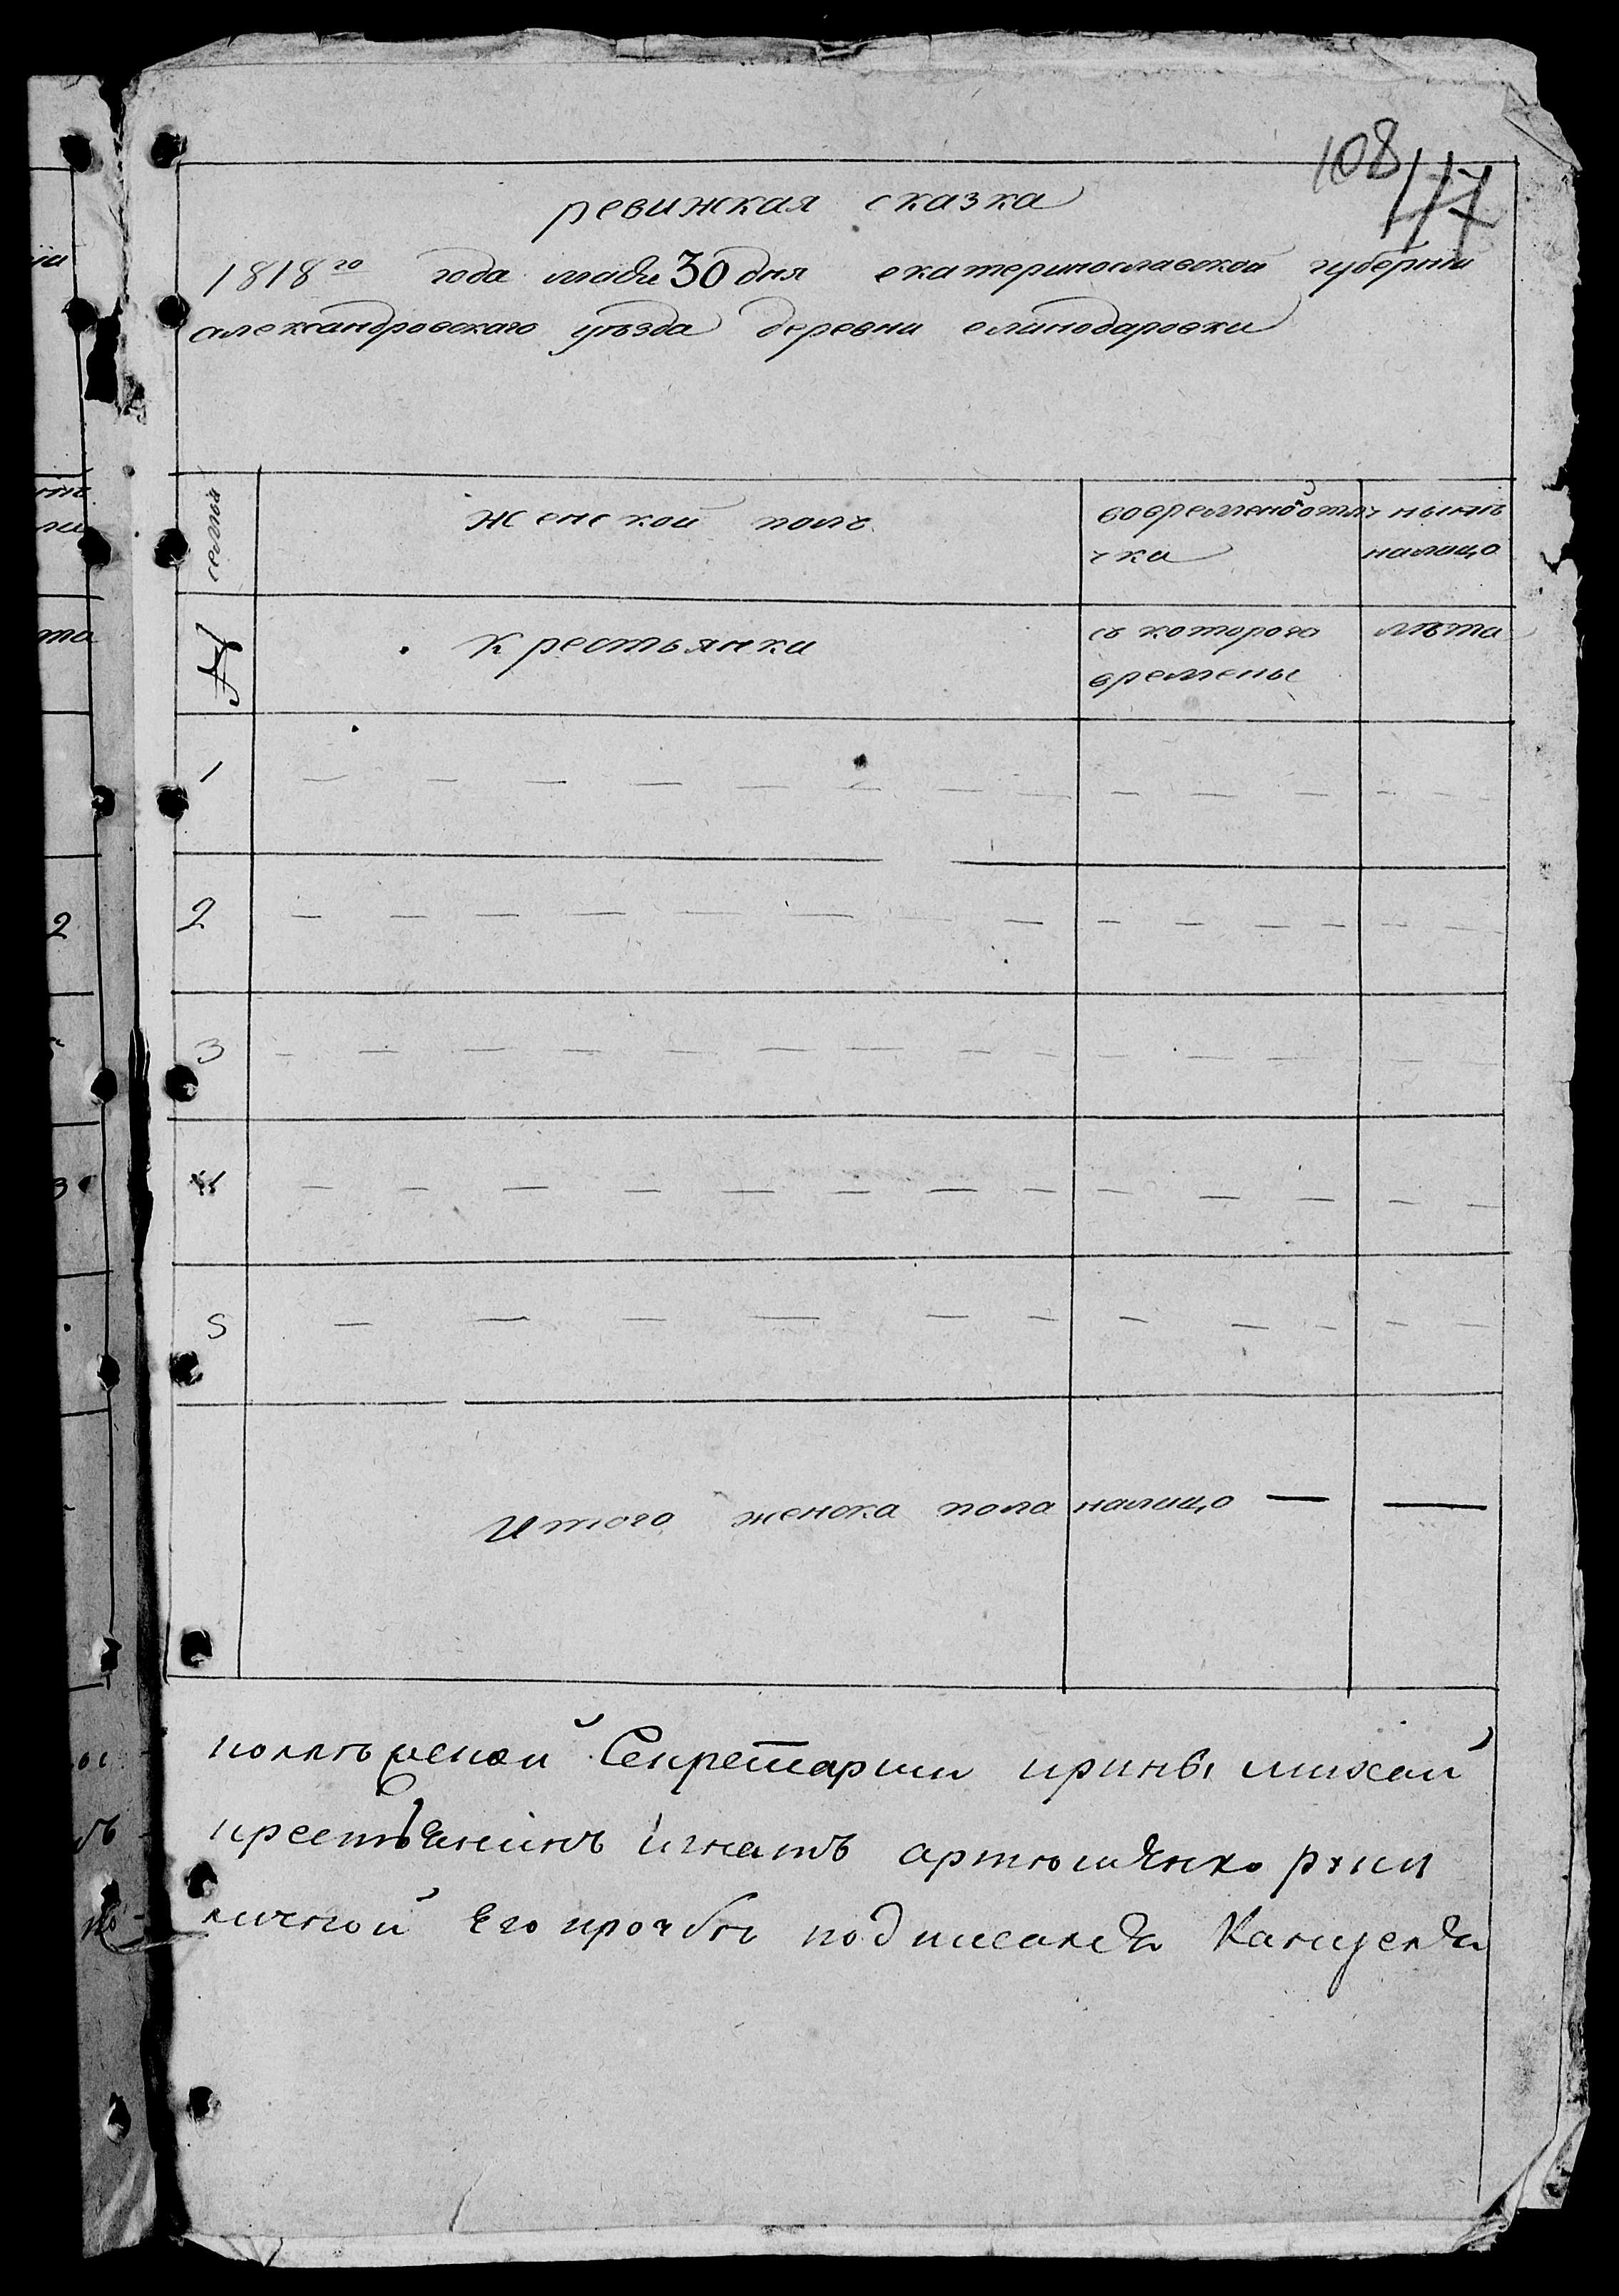 108
117
ревижская сказка
1818го года маѣи 30 дня екатеринославской губернии
александровского уѣзда деревни елинодаровки
семьи
женской полъ
вовременѣотлу
чка
нынѣ
налицо
№
крестьянки
съ которого
времены
лѣта
1
2
3
4
5
Итого женска пола налицо
Секретарши
крестьянинъ игнатъ артюшенко
личной его прозбы подписался Канцеля